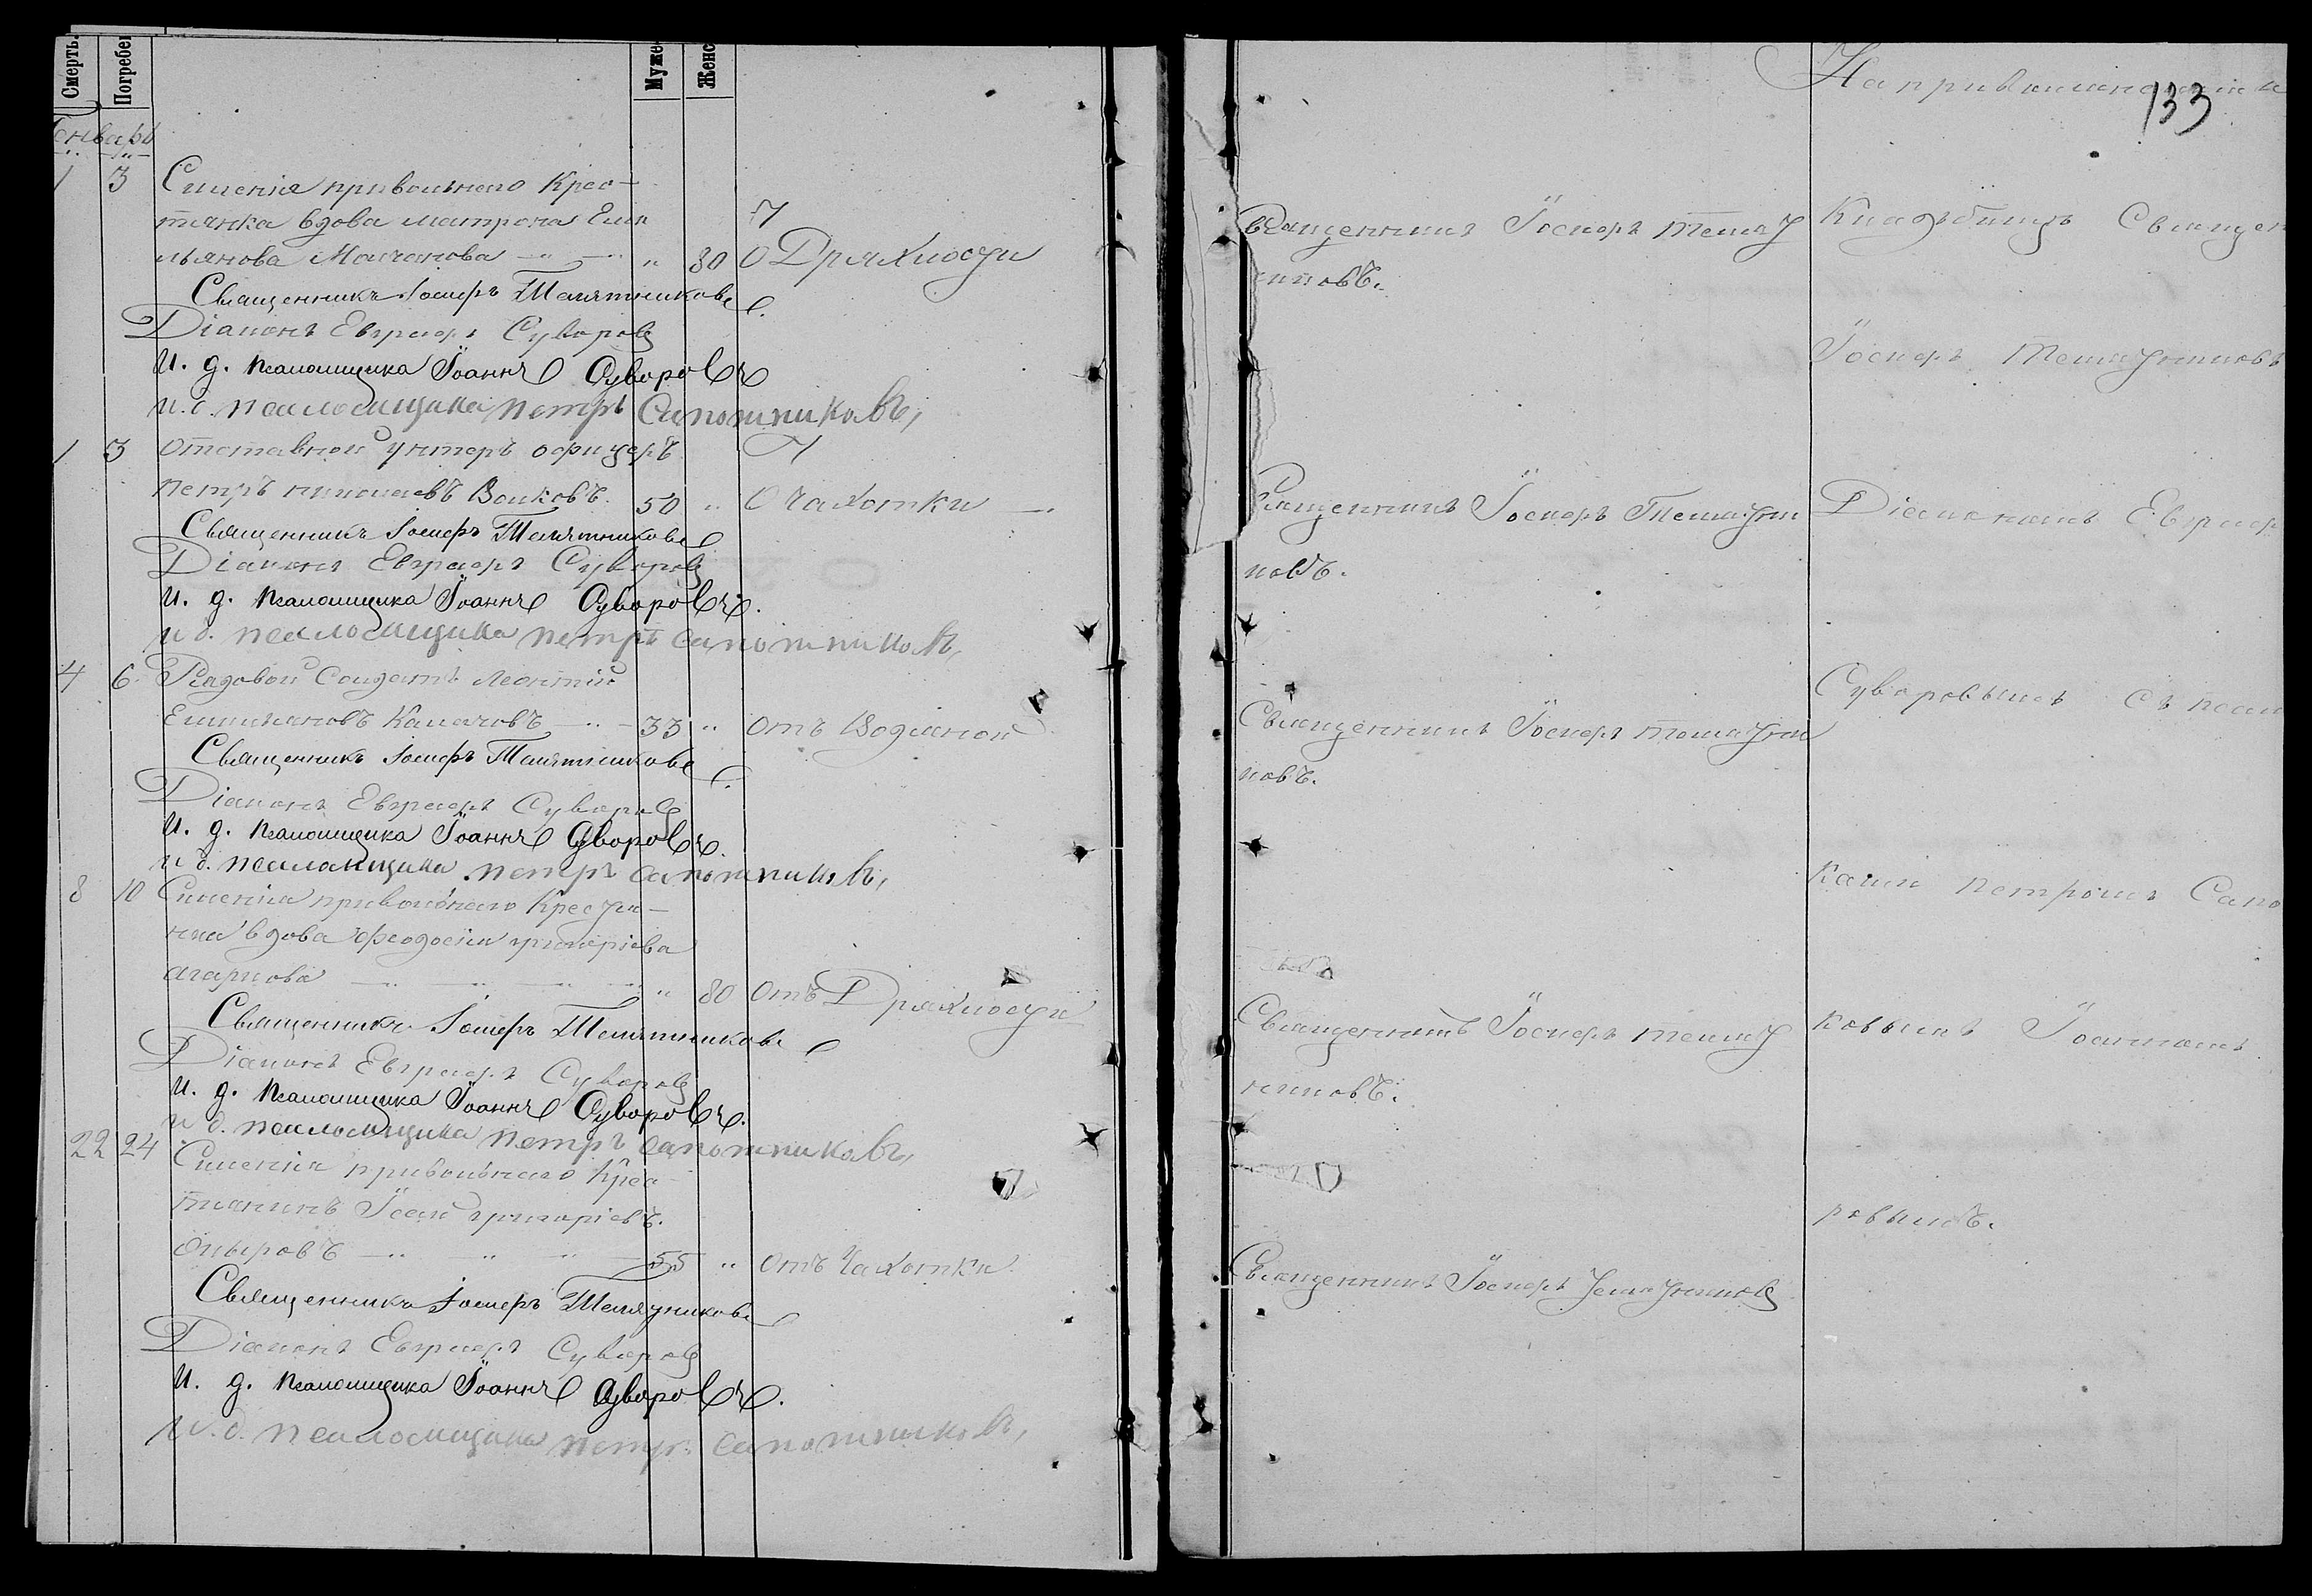 Смерть. Погребе Муже Женс
Генварь
1 3 Силенія привольнаго Крес-
тянка вдова матрона Емил
иьянова Малчонова " 80 О Дряхлости
Священникъ Іосифъ Телятниковъ
Діаконъ Евграфъ Суворовъ
И. д. псаломщика Іоаннъ Суворовъ
и. д. псаломщика петръ Сапожниковъ,
1 3 отставной унтеръ офицеръ
петръ николаевъ Волковъ. 50 " О чахотки
Священникъ Іосифъ Телятниковъ
Діаконъ Евграфъ Суворовъ
И. д. псаломщика Іоаннъ Суворовъ.
и д. псаломщика петръ сапожниковъ,
4 6. Рядовой Солдатъ леонтій
Емилиановъ Калачовъ 33 " отъ Водяной
Священникъ Іосифъ Телятниковъ
Діаконъ Евграфъ Суворовъ
И. д. псаломщика Іоаннъ Суворовъ.
и д. псаломщика петръ сапожниковъ,
8 10 Силенія привольнаго Крестя-
нка вдова феодосия григоріева
агаркова " 80 отъ Дряхлости
Священникъ Іосифъ Телятниковъ
Діаконъ Евграфъ Суворовъ
И. д. псаломщика Іоаннъ Суворовъ.
и д. псаломщика петръ сапожниковъ,
22 24 Силенія привольнаго Крес-
тианинъ григоріевъ.
55 " отъ Чахотки
Священникъ Іосифъ Телятниковъ
Діаконъ Евграфъ Суворовъ
И. д. псаломщика Іоаннъ Суворовъ.
и. д. псаломщика петръ сапожниковъ,
На привольно
133
Священникъ Іосифъ телят
никовъ.
Священникъ Іосифъ Телятни
ковъ.
Священникъ Іосифъ телятни
ковъ.
Священникъ Іосифъ телят
никовъ.
Священникъ Іосифъ телятниковъ
Кладбищъ Священ
Іосифъ телятниковъ
Діаконамъ Евграф
Суворовымъ съ псал
петромъ Сапо
ковымъ Іоанномъ
ровымъ.